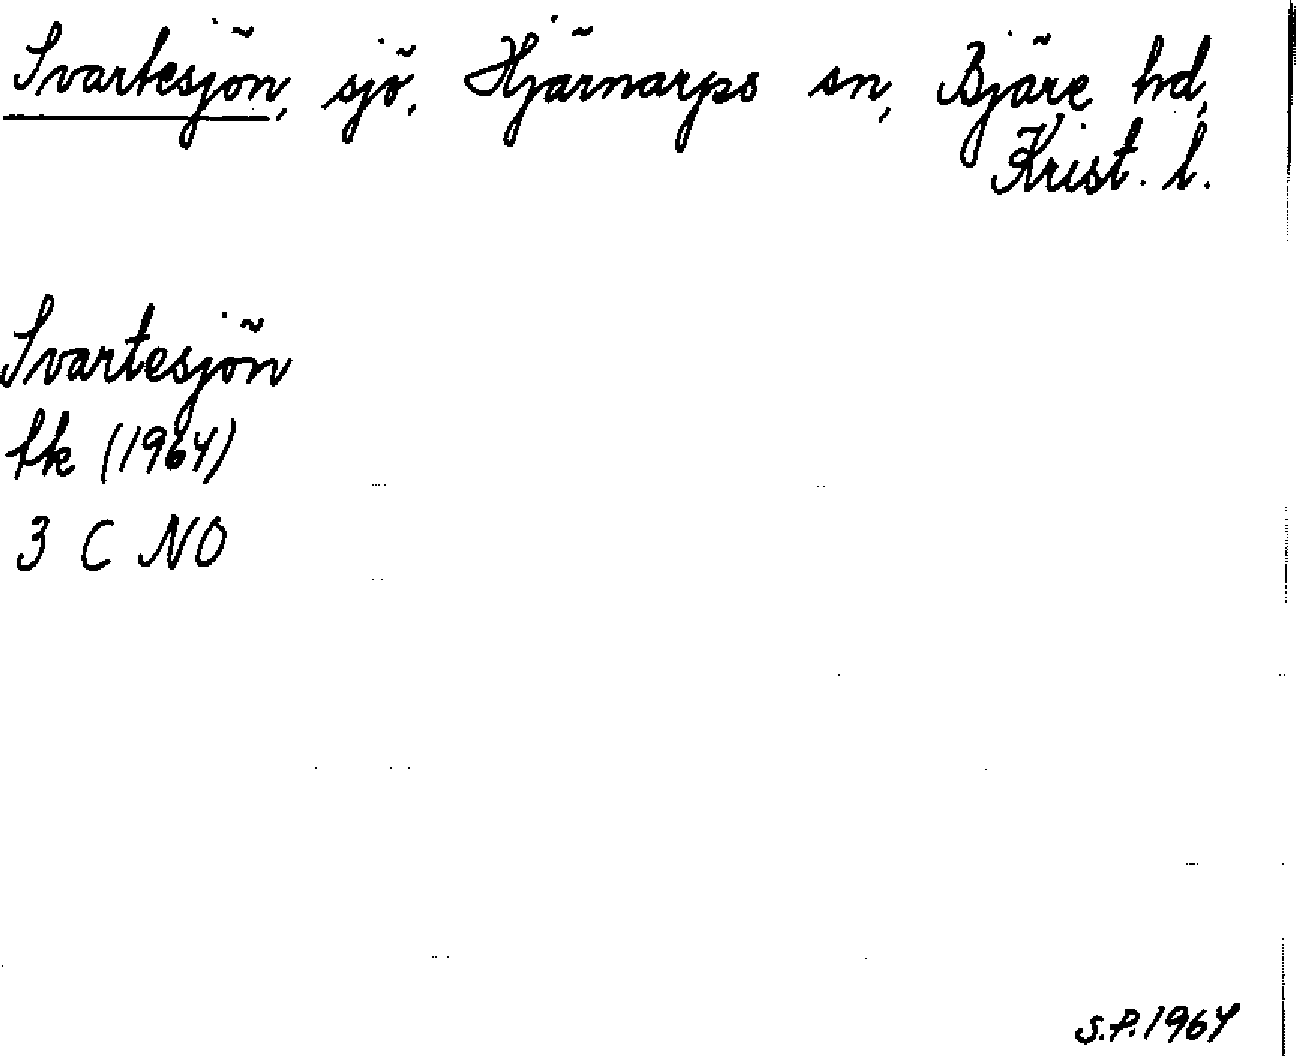 Svartesjön, sjö, Hjärnarps sn, Bjäre hd,
Krist. l.
Svartesjön
tk (1964)
3 C NO
S.P. 1964